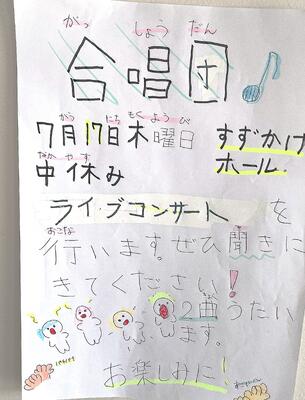 がっ しょう だん
合唱団
がつ にち もく よう び
7月17日木曜日 すずかけ
なか やす
中休み ホール.
ライブコンサート を
おこな
行います。ぜひ聞きに
きてください!
2曲うたい
ます。
お楽しみに!